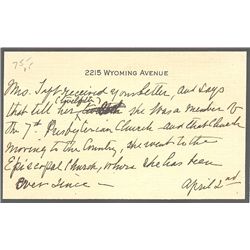 2215 WYOMING AVENUE
Mrs. Taft received your letter, and says
that till her she was a member of
the 7th Presbyterian Church and that Church
moving to the Country, she went to the
Episcopal Church, where she has been
ever since —
April 2nd